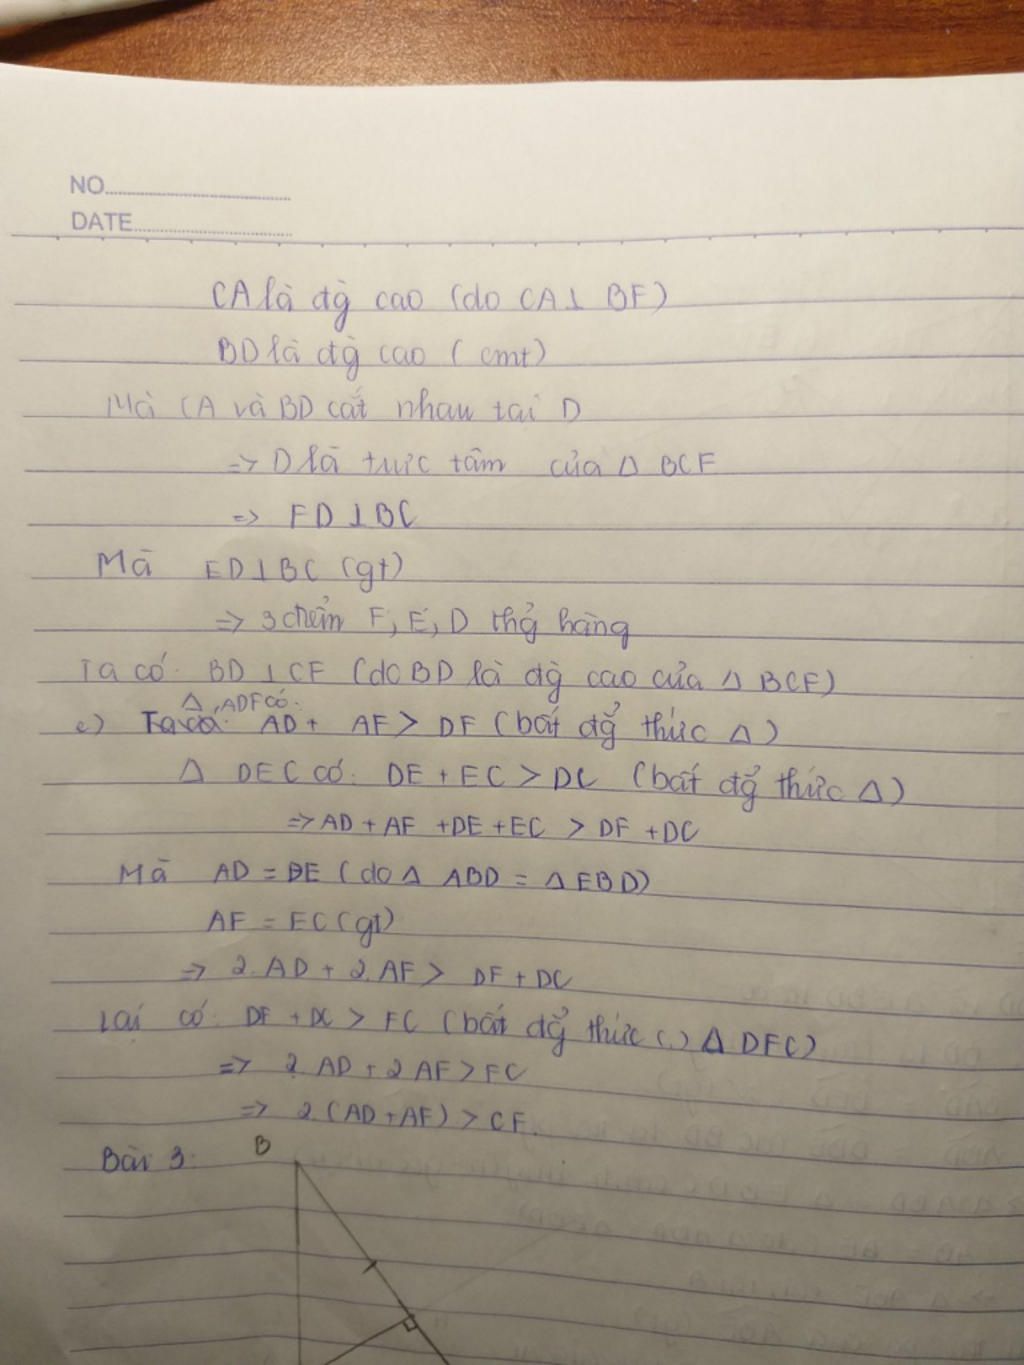 NO
DATE
CA là đg̀ cao (do CA ⊥ BF)
BD là đg̀ cao (cmt)
Mà CA và BD cắt nhau tại D
=> D là trực tâm của Δ BCF
=> FD ⊥ BC
Mà ED ⊥ BC (gt)
=> 3 điểm F, E, D thg̉ hàng
Ta có: BD ⊥ CF (do BD là đg̀ cao của Δ BCF)
Δ ADF có:
c) AD + AF > DF (bất đg̉ thức Δ)
Δ DEC có: DE + EC > DC (bất đg̉ thức Δ)
=> AD + AF + DE + EC > DF + DC
Mà AD = DE (do Δ ABD = Δ EBD)
AF = EC (gt)
=> 2.AD + 2.AF > DF + DC
Lại có: DF + DC > FC (bất đg̉ thức Δ DFC)
=> 2 AD + 2 AF > FC
=> 2 (AD + AF) > CF.
Bài 3: B